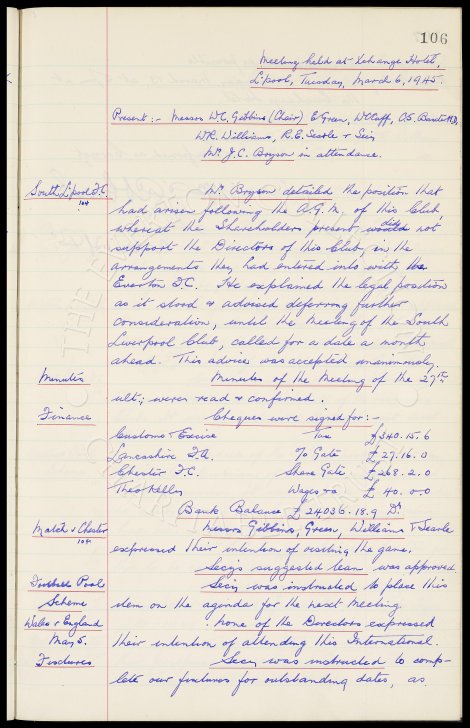 106
Meeting held at Xchange Hotel,
L'pool, Tuesday, March 6, 1945.
Present:- Messrs W.C. Gibbins (Chair) E Green, W.C. Cuff, C.S. Baxter M.D,
W.R. Williams, R.E. Searle & Secy
Mr. J.C. Bryson in attendance.
South L'pool F.C. Mr. Bryson detailed the position that
104
had arisen following the A.G.M. of this Club,
whereat the Shareholders present would did not
support the Directors of this Club, in the
arrangements they had entered into with the
Everton F.C. He explained the legal position
as it stood & advised deferring further
consideration, until the Meeting of the South
Liverpool Club, called for a date a month
ahead. This advice was accepted unanimously.
Minutes Minutes of the Meeting of the 27th
ult; were read & confirmed.
Finance Cheques were signed for:-
Customs & Excise Tax £340.15.6
Lancashire F.A. % Gate £27.16.0
Chester F.C. Share Gate £268.2.0
Theo Kelly Wages &c £40.0.0
Bank Balance £24036.18.9 Dr.
Match v Chester Messrs Gibbins, Green, Williams & Searle
104
expressed their intention of visiting the game.
Secy's suggested team was approved
Football Pools Secy was instructed to place this
Scheme item on the agenda for the next Meeting.
Wales v England None of the Directors expressed
May 5. their intention of attending this International.
Fixtures Secy was instructed to comp-
lete our fixtures for outstanding dates, as